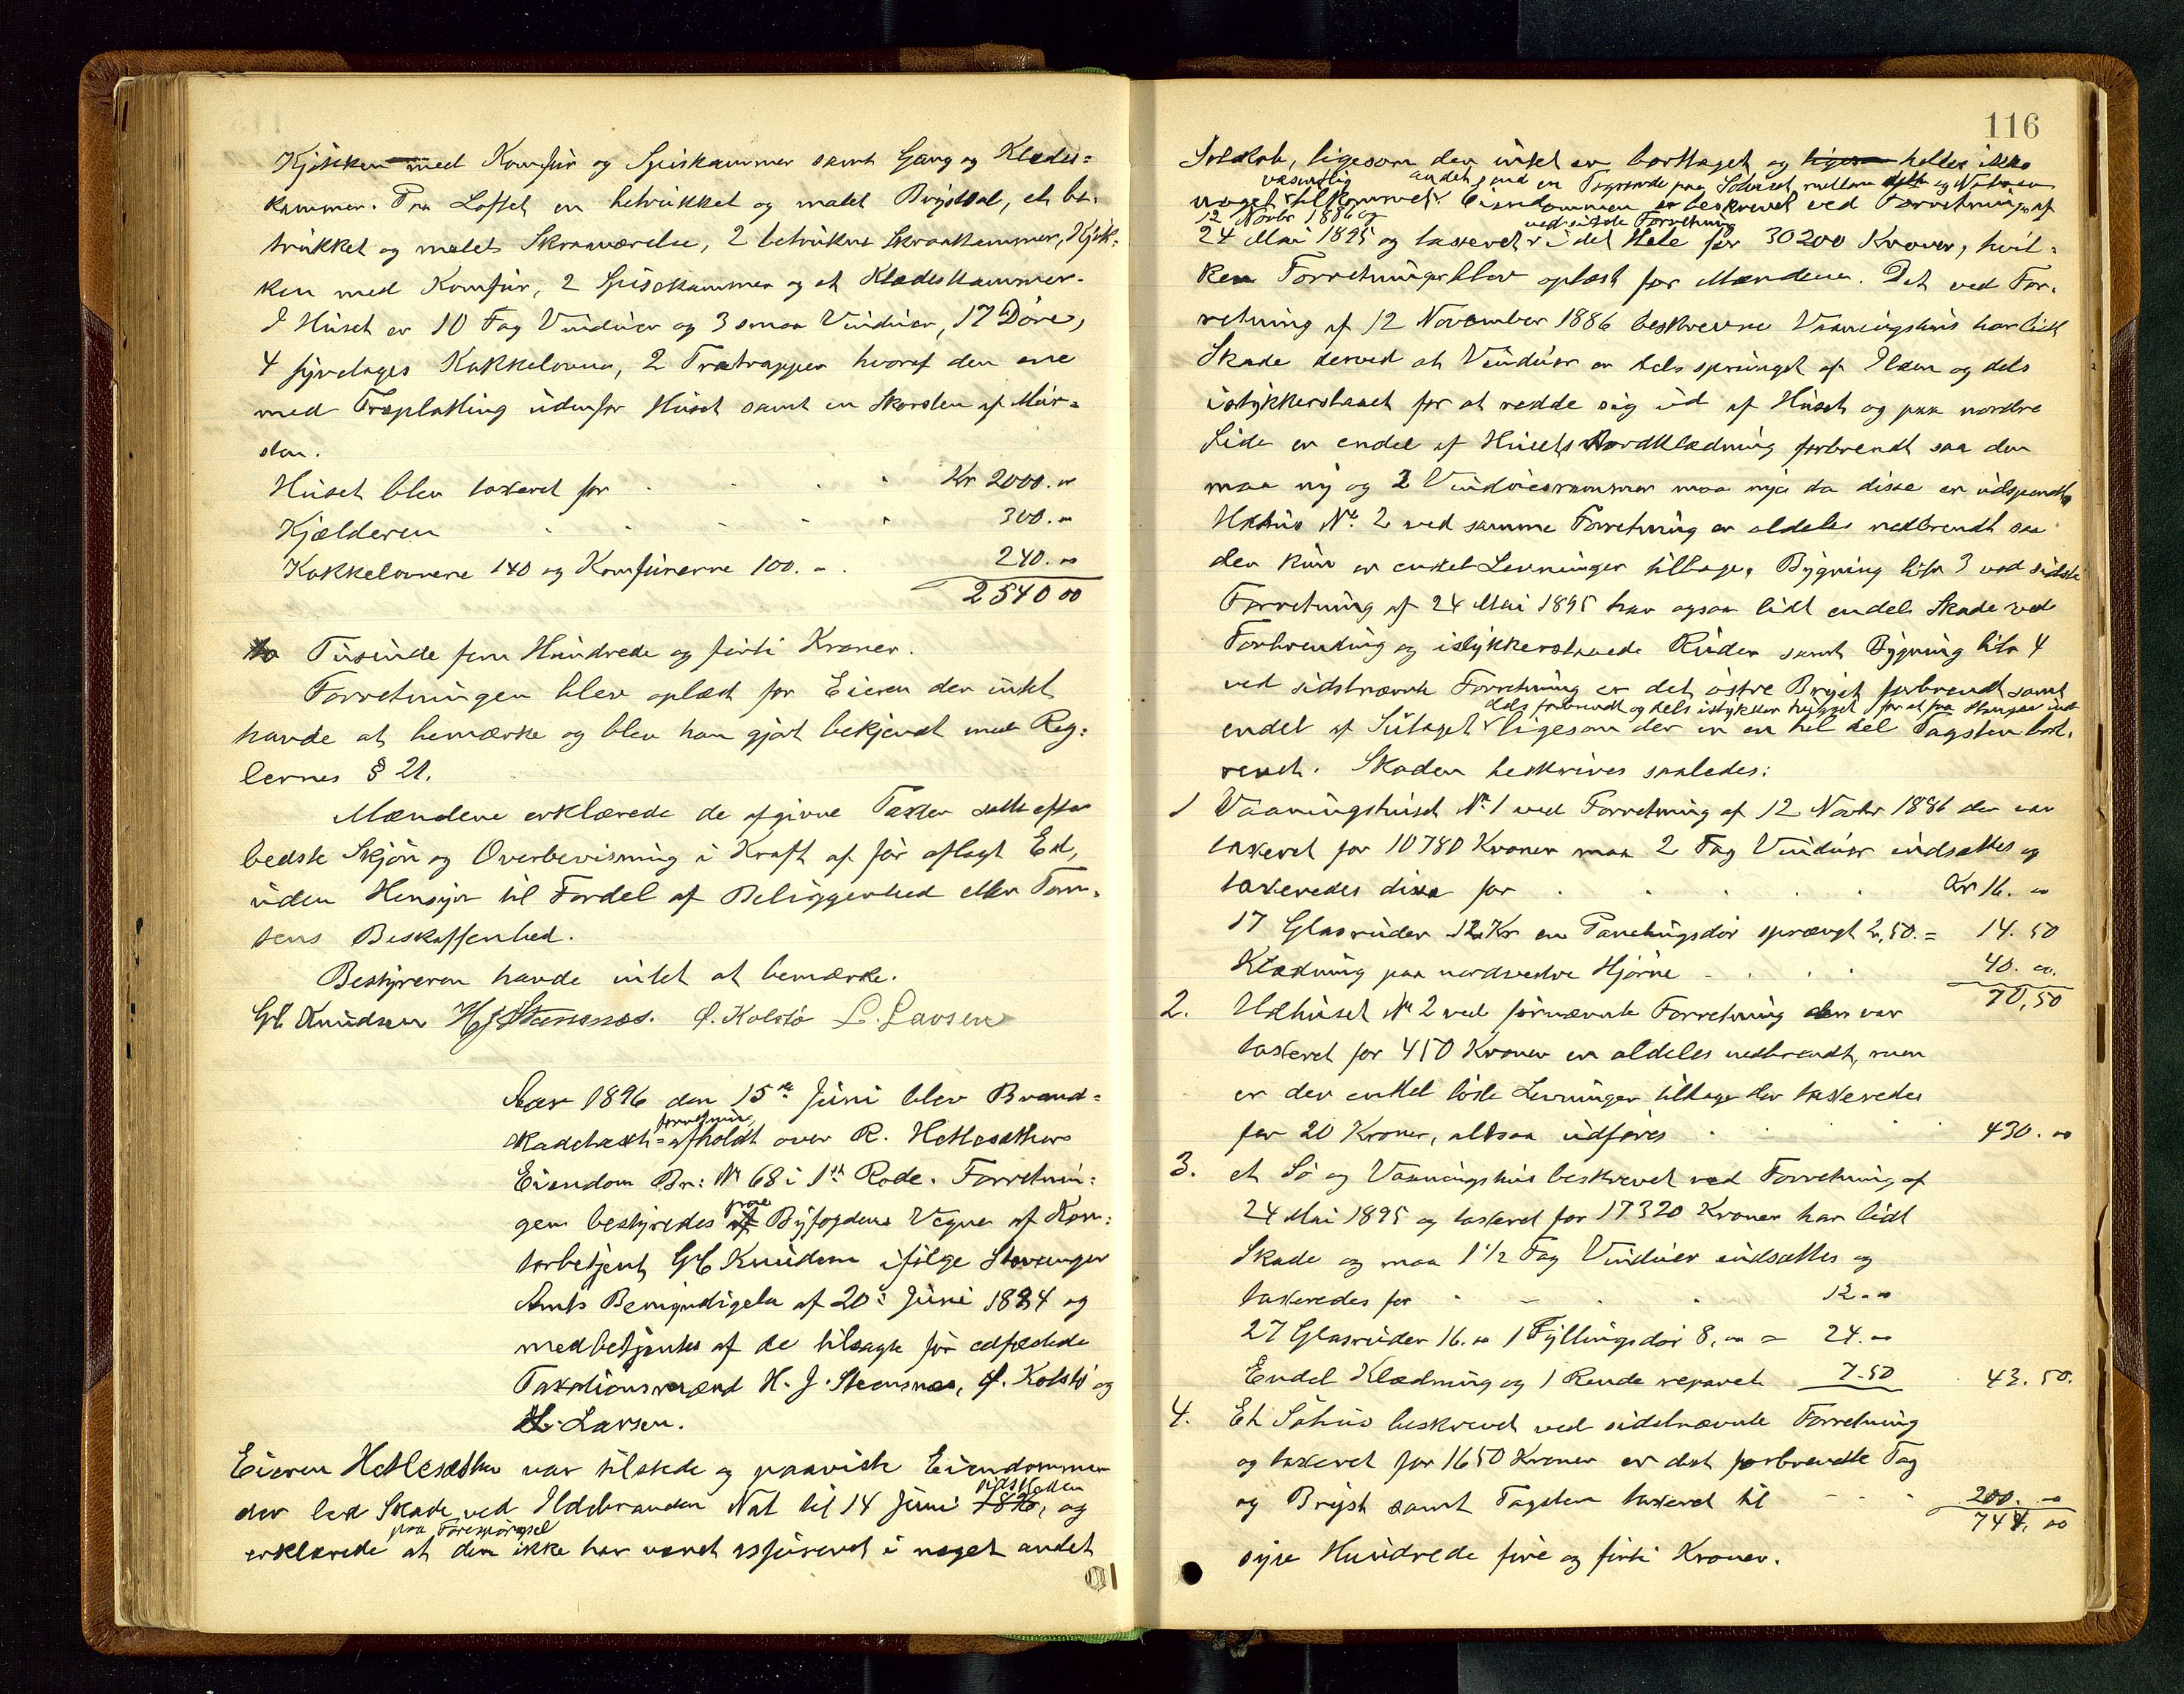 Kjøkken med Komfür og Spiskammer samt Gang og Klædes=
kammer. Paa Loftet en betrükket og malet Brystsal, et be-
trükket og malet Skraaværelse, 2 betrükne Skraakammer, Kjøk-
ken med Komfür, 2 Spisekammer og et Klædeskammer.
I Hüset er 10 Fag Vindüer og 3 smaa Vindüer, 17 Døre,
4 fyretages Kakkelovne, 2 Trætrapper hvoraf den ene
med Træplatting üdenfor Hüset samt en Skorsten af Mür=
sten.
Hüset blev taxeret for Kr 2000. "
Kjælderen 300. "
Kakkelovnene 140 og Komfürerne 100. - 240. 00
2540 00
to Tüsinde fem Hündrede og førti Kroner.
Forretningen blev oplæst for Eieren der intet
havde at bemærke og blev han gjort bekjendt med Reg=
lernes § 21.
Mændene erklærede de afgivne Taxter satte efter
bedste Skjøn og Overbevisning i Kraft af før aflagt Ed,
üden Hensyn til Fordel af Beliggenhed eller Tom-
tens Beskaffenhed.
Bestyreren havde intet at bemærke.
G Knüdsen H J Stensnes. Kolstø L. Larsen
Aar 1896 den 15de Jüni blev Brand=
forretning
skadetaxt= afholdt over R. Hetlesæthers
Eiendom Br: No 68 i 1ste Rode. Forretnin=
paa
gen bestyredes af Byfogdens Vegne af Kon=
torbetjent G Knüdsen ifølge Stavanger
Amts Bemyndigelse af 20: Jüni 1884 og
medbetjentes af de tilsagte før edfæstede
Taxationsmænd H. J. Stensnes, Kolstø og
L. Larsen.
Eieren Hetlesæther var tilstede og paaviste Eiendommen
sidstleden
der led Skade ved Ildebranden Nat til 14 Jüni 1896, og
paa Forespørgsel
erklærede at den ikke har været assüreret i noget andet
116
Selskab, ligesom der intet er borttaget og ligesom heller ikke
væsentlig andet end en Tagrende paa Søhüset mellem dette og Naboen
noget tilkommet. Eiendommen er beskrevet ved Forretning af
12 Novbr 1886 og ved sidste Forretning
24 Mai 1895 og taxeret i det Hele for 30200 Kroner, hvil=
ken Forretning blev oplæst for Mændene. Det ved For-
retning af 12 November 1886 beskrevne Vaaningshüs har lidt
Skade derved at Vindüer er dels sprünget af Ilden og dels
istykkerslaaet for at redde sig üd af Hüset og paa nordre
Side er endel af Hüsets Bordklædning forbrendt saa den
maa ny og 2 Vindüesrammer maa nye da disse er üdspændte
Udhüs No 2 ved samme Forretning er aldeles nedbrendt saa
der kün er enkel Levninger tilbage. Bygning litr 3 ved sidste
Forretning af 24 Mai 1895 har ogsaa lidt endel Skade ved
Forbrending og istykkerslaaede Rüder samt Bygning litr 4
ved sidstnævnte Forretning er det østre Bryst forbrendt samt
dels forbrendt og dels istykker hügget for at faa Slangen ind
endel af Sütaget ligesom der er en hel del Tagsten bort-
revet. Skaden beskrives saaledes:
1 Vaaningshüset No 1 ved Forretning af 12 Novbr 1886 der var
taxeret for 10780 Kroner maa 2 Fag Vindüer indsættes og
taxeredes disse for Kr 16. 00
17 Glasrüder 12 Kr en Panelingsdør sprængt 2,50. = 14. 50
Klædning paa nordvestre Hjørne 40. 00.
70,50
2. Udhüset No 2 ved førnævnte Forretning der var
taxeret for 450 Kroner er aldeles nedbrendt, men
er der enkel løse Levninger tilbage der taxeredes
for 20 Kroner, altsaa üdføres 430. 00
3. et Sø og Vaaningshüs beskrevet ved Forretning af
24 Mai 1895 og taxeret for 17320 Kroner har lidt
Skade og maa 1 1/2 Fag Vindüer indsættes og
taxeredes for 12. 00
27 Glasrüder 16. 00 1 Fyllingsdør 8. 00 = 24. 00
Endel Klædning og 1 Rende reparet 7.50 43. 50.
4. Et Søhüs beskrevet ved sidstnævnte Forretning
og taxeret for 1650 Kroner er det forbrendte Tag
og Bryst samt Tagsten taxeret til 200. 00
744. 00
syv Hündrede fire og førti Kroner.